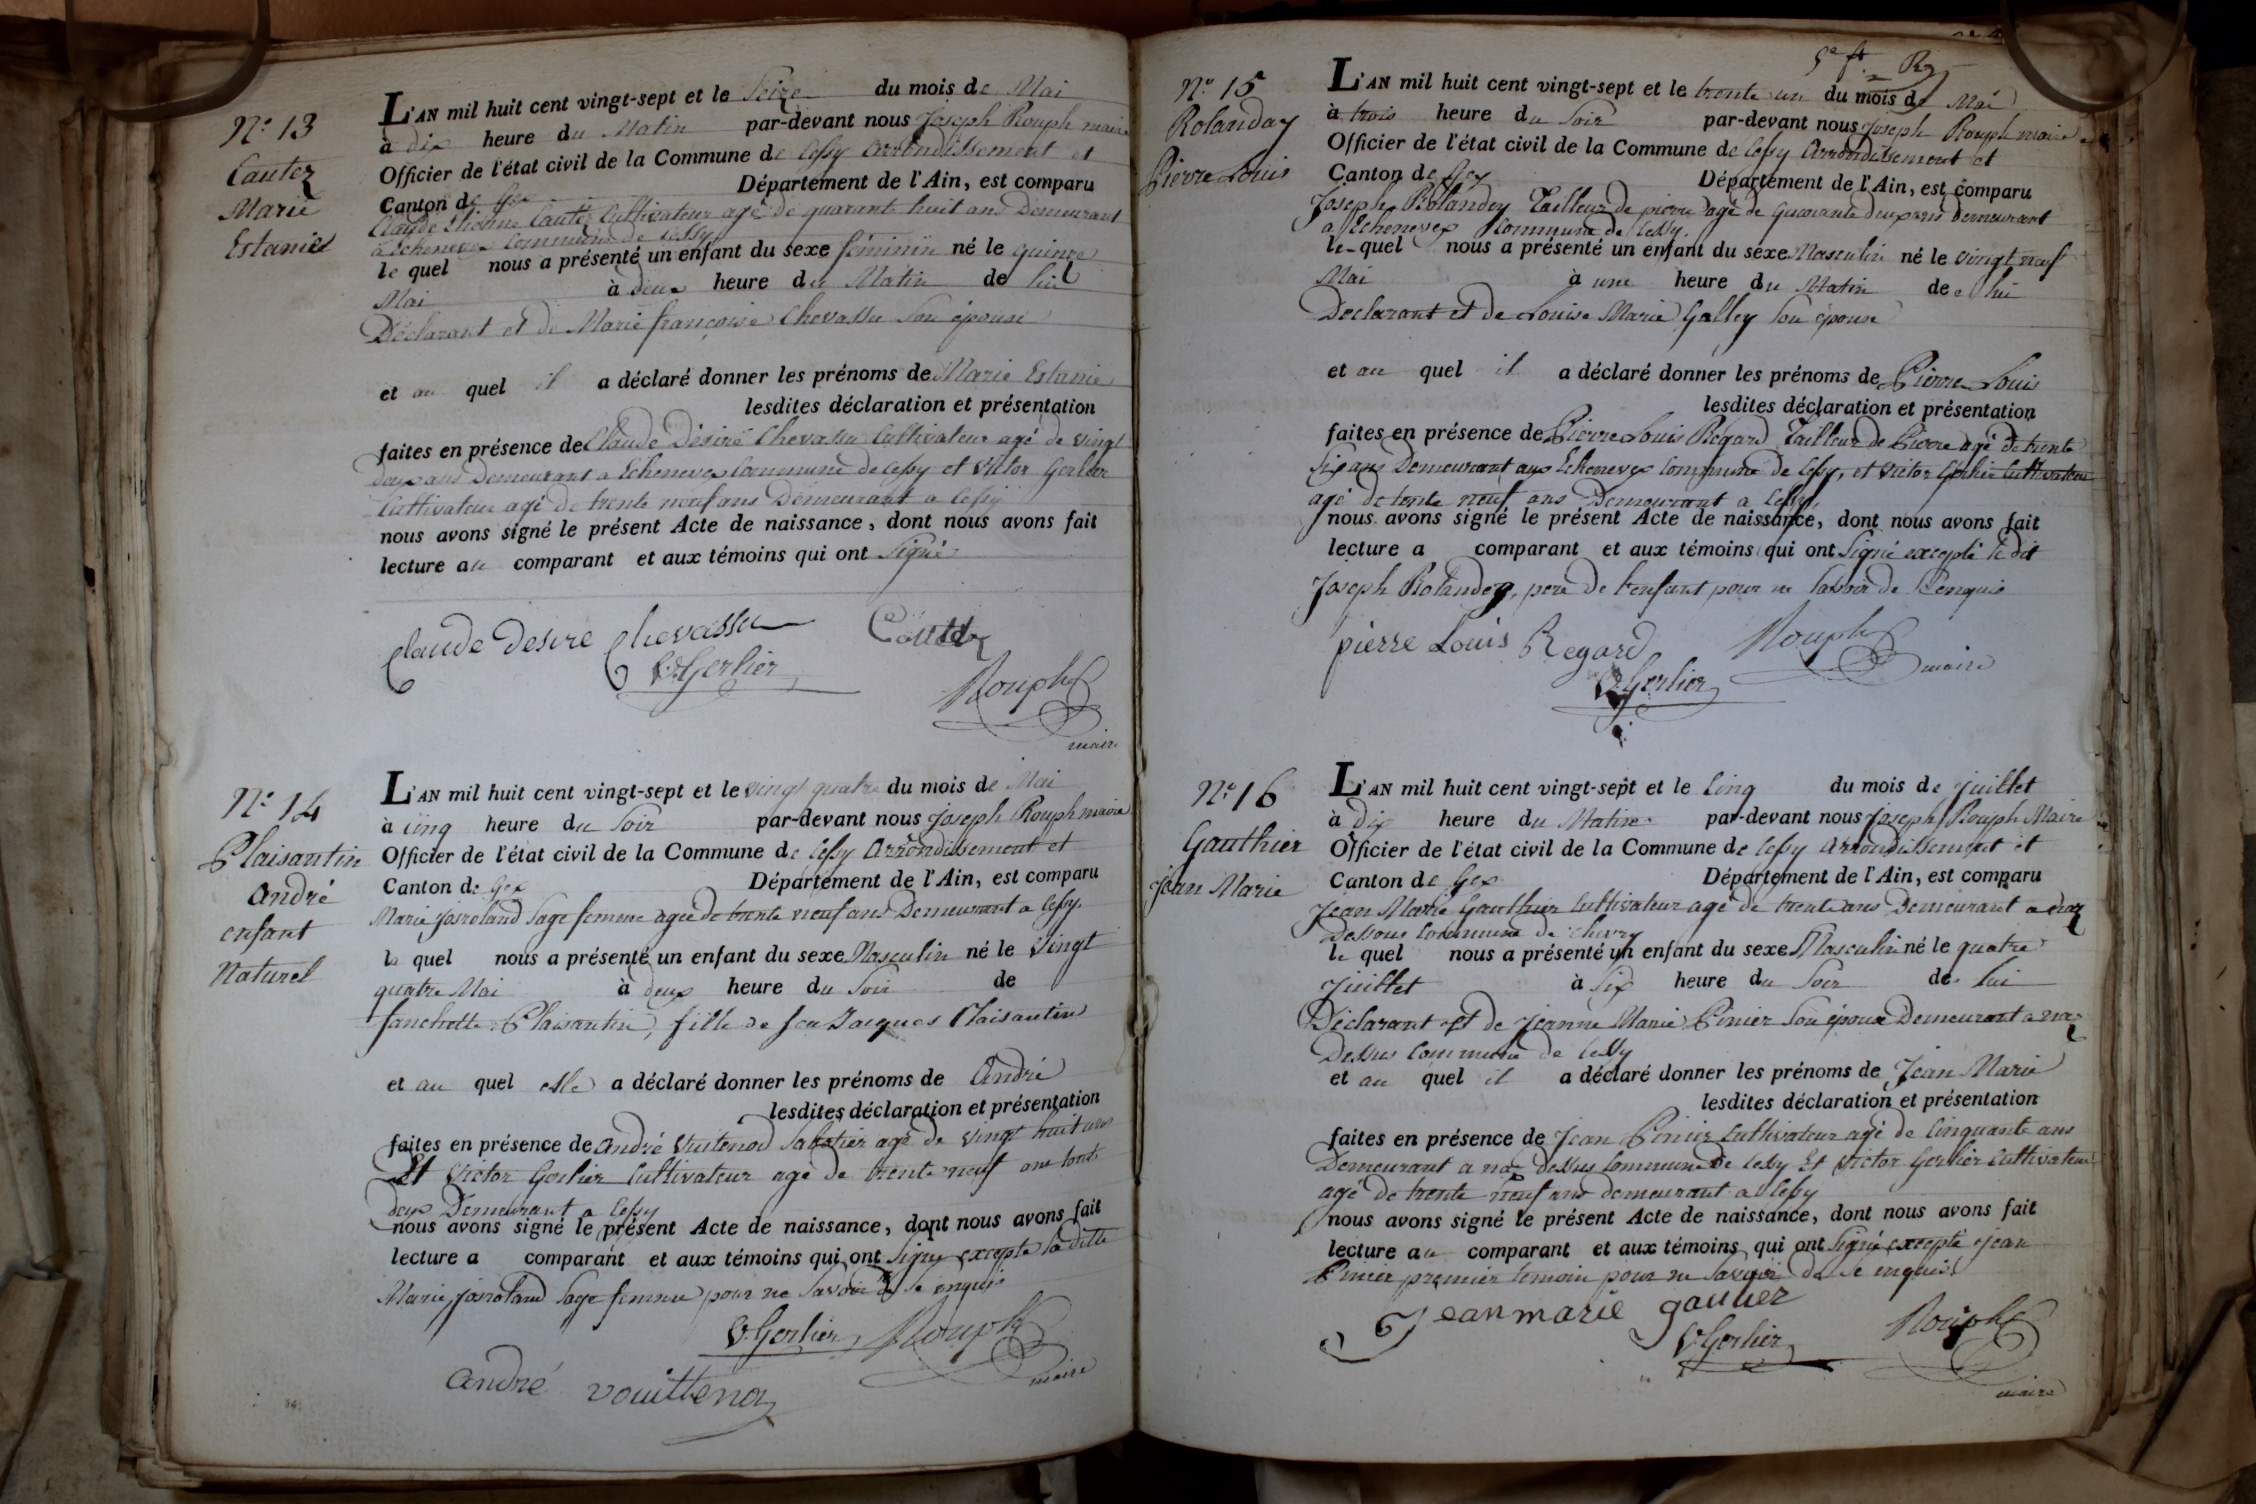 N.º 13
Cautez
Marie
Estanie
L'AN mil huit cent vingt-sept et le Seize du mois de Mai
à dix heure du Matin par-devant nous Joseph Rouph maire
Officier de l'état civil de la Commune de Cessy Arrondissement et
Canton de Gex Département de l'Ain, est comparu
Claude Etienne Cautez Cultivateur agé de quarante huit ans Demeurant
a Echenevex Commune de Cessy
le quel nous a présenté un enfant du sexe féminin né le quinze
Mai à deux heure du Matin de lui
Déclarant et de Marie françoise Chevassu Son épouse
et au quel il a déclaré donner les prénoms de Marie Estanie
lesdites déclaration et présentation
faites en présence de Claude Désiré Chevassu Cultivateur agé de vingt
deux ans Demeurant a Echenevex Commune de Cessy et Victor Gerlier
Cultivateur agé de trente neuf ans Demeurant a Cessy
nous avons signé le présent Acte de naissance, dont nous avons fait
lecture au comparant et aux témoins qui ont Signé
Claude Desire Chevassu Cautez
V. Gerlier
Rouph
maire
N.º 14
Plaisantin
André
enfant
Naturel
L'AN mil huit cent vingt-sept et le vingt quatre du mois de Mai
à cinq heure du Soir par-devant nous Joseph Rouph maire
Officier de l'état civil de la Commune de Cessy Arrondissement et
Canton de Gex Département de l'Ain, est comparu
Marie Josroland Sage femme agée de trente neuf ans Demeurant a Cessy.
la quel nous a présenté un enfant du sexe Masculin né le Vingt
quatre Mai à deux heure du Soir de
fanchette Plaisantin, fille de feu Jacques Plaisantin
et au quel elle a déclaré donner les prénoms de André
lesdites déclaration et présentation
faites en présence de André Vuitenod Sabotier agé de vingt huit ans
Et Victor Gerlier Cultivateur agé de trente neuf ans touts
deux Demeurant a Cessy
nous avons signé le présent Acte de naissance, dont nous avons fait
lecture a comparant et aux témoins qui ont Signy excepté la ditte
Marie Josroland Sage femme pour ne Savoir de Se enquis
V. Gerlier Rouph
maire
André vouittenoz
5e ft. Rg
N.º 15
Rolanday
Pierre Louis
L'AN mil huit cent vingt-sept et le trente un du mois de Mai
à trois heure du Soir par-devant nous Joseph Rouph maire
Officier de l'état civil de la Commune de Cessy Arrondissement et
Canton de Gex Département de l'Ain, est comparu
Joseph Rolandey Tailleur de pierre agé de quarante deux ans demeurant
a Echenevex Commune de Cessy.
le quel nous a présenté un enfant du sexe Masculin né le vingt neuf
Mai à une heure du Matin de lui
Declarant et de Louise Marie Galley Son épouse
et au quel il a déclaré donner les prénoms de Pierre Louis
lesdites déclaration et présentation
faites en présence de Pierre Louis Regard Tailleur de Pierre agé de trente
Six ans Demeurant aux Echenevex Commune de Cessy, et Victor Gerlier Cultivateur
agé de trente neuf ans Demeurant a Cessy.
nous avons signé le présent Acte de naissance, dont nous avons fait
lecture a comparant et aux témoins qui ont Signé excepté le dit
Joseph Rolandey, pere de l'enfant pour ne Savoir de S'enquis
pierre Louis Regard Rouph
maire
V. Gerlier
N.º 16
Gauthier
Jean Marie
L'AN mil huit cent vingt-sept et le Cinq du mois de Juillet
à dix heure du Matin par-devant nous Joseph Rouph Maire
Officier de l'état civil de la Commune de Cessy Arrondissement et
Canton de Gex Département de l'Ain, est comparu
Jean Marie Gauthier Cultivateur agé de trente ans Demeurant a naz
Dessous Commune de Chevry
le quel nous a présenté un enfant du sexe Masculin né le quatre
Juillet à Six heure du Soir de lui
Déclarant et de Jeanne Marie Pinier Son épouse Demeurant a naz
Dessus Commune de Cessy
et au quel il a déclaré donner les prénoms de Jean Marie
lesdites déclaration et présentation
faites en présence de Jean Pinier Cultivateur agé de Cinquante ans
Demeurant a naz dessus Commune de Cessy Et Victor Gerlier Cultivateur
agé de trente neuf ans demeurant a Cessy
nous avons signé le présent Acte de naissance, dont nous avons fait
lecture au comparant et aux témoins qui ont Signé excepté Jean
Pinier premier temoin pour ne Savoir de Se enquis
Jean marie gautier
V. Gerlier
Rouph
maire